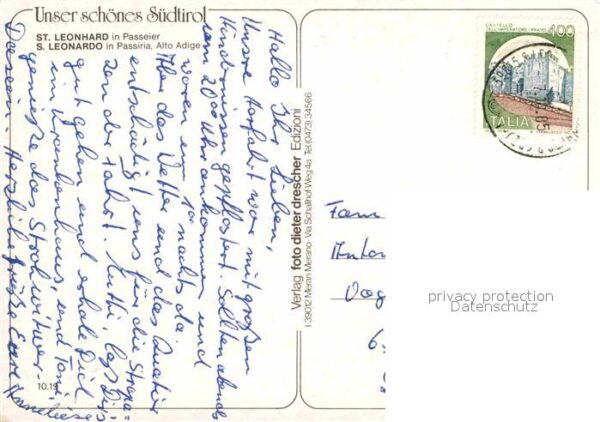 Unser schönes Südtirol
ST. LEONHARD in Passeier
S. LEONARDO in Passiria, Alto Adige
Hallo Ihr Lieben,
Unsere Herfahrt war mit großen
Hindernissen gepflastert. Sollten abends
um 20⁰⁰ Uhr ankommen und
waren um 1⁰⁰ nachts da.
Aber das Wetter und das Quatier
entschädigt uns für die Strapa=
zen der Fahrt. Mutti, laß Dir's
gut gehen und erhole Dich
im Krankenhaus, und Toni,
genieße das Strohwitwer-
Dasein. Herzliche Grüße Eure Anneliese
10.19
Verlag foto dieter drescher Edizioni
I 39012 Meran Merano · Via Schallhof Weg 4a · Tel. (0473) 34566
CASTELLO
DELL'IMPERATORE · PRATO
400
ITALIA
Fam
Anto
privacy protection
Datenschutz